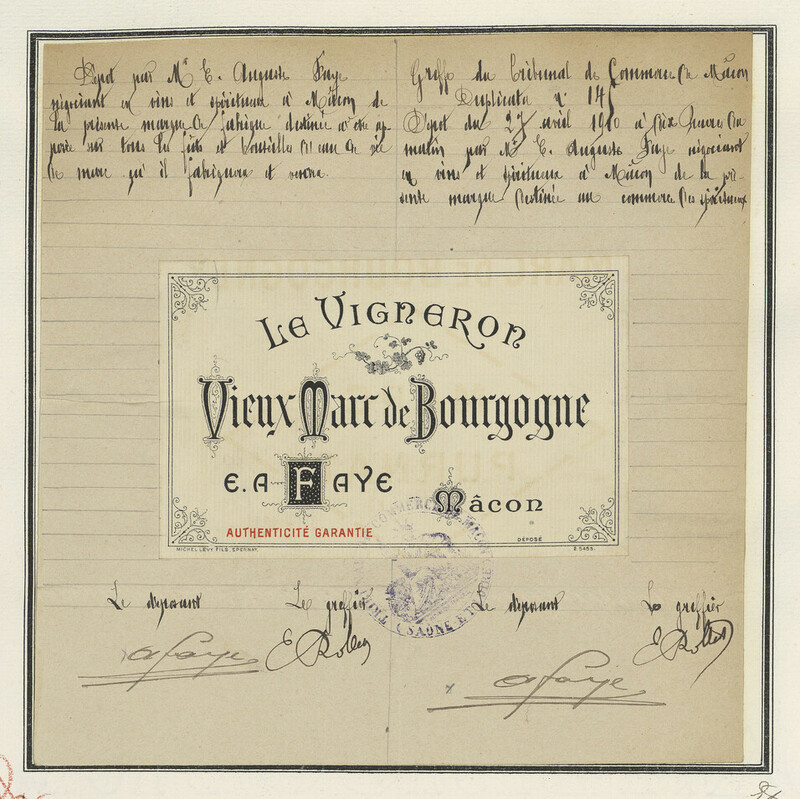 Dépôt par Mr E. Auguste Faye
négociant en vins et spiritueux à Mâcon de
la présente marque de fabrique destinée à être ap
posée sur tous les fûts et bouteilles d'eau de vie
de marc qu'il fabriquera et vendra
Greffe du Tribunal de Commerce de Mâcon
Duplicata n° 145
Dépôt du 27 avril 1910 à dix heures du
matin par Mr E. Auguste Faye négociant
en vins et spiritueux à Mâcon de la pré
sente marque destinée au commerce des spiritueux
LE VIGNERON
Vieux Marc de Bourgogne
E. A FAYE
Mâcon
AUTHENTICITÉ GARANTIE
DÉPOSÉ
MICHEL LEVY FILS. EPERNAY.
COMMERCE DE MACON
(SAONE ET LOIRE)
Le déposant Le greffier Le déposant Le greffier
afaye
afaye